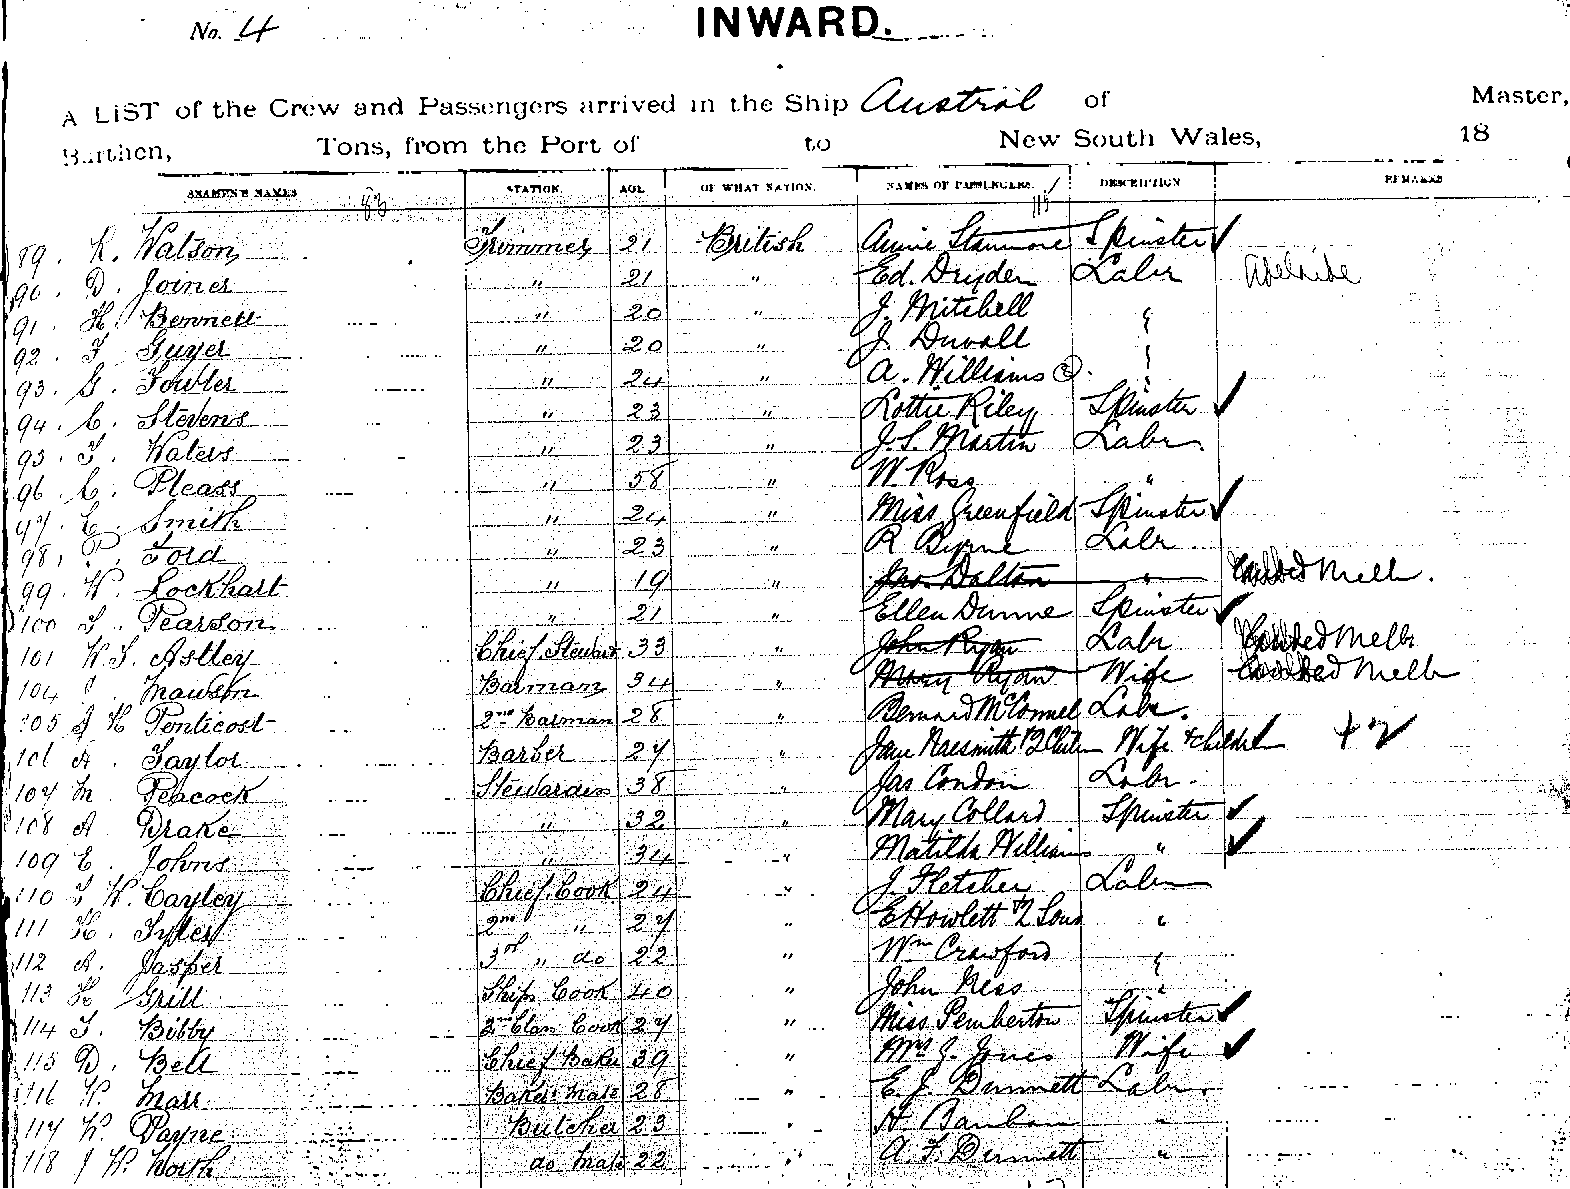 No. 4
INWARD.
A LIST of the Crew and Passengers arrived in the Ship Austral of Master,
Burthen, Tons, from the Port of to New South Wales, 18
NAMES STATION. AGE. OF WHAT NATION. NAMES OF PASSENGERS. DESCRIPTION REMARKS
83 115
89. R. Watson Trimmer 21 British Annie Stanmore Spinster ✓
90. D. Joiner " 21 " Ed. Dryden Labr Adelaide
91. H. Bennett " 20 " J. Mitchell "
92. F Guyer " 20 " J. Duvall "
93. G. Fowler " 24 " A. Williams "
94. C. Stevens " 23 " Lottie Riley Spinster ✓
95. T. Waters " 23 " J.S. Martin Labr.
96. C. Pleass " 58 " W Ross "
97. E. Smith " 24 " Miss Greenfield Spinster ✓
98. P. Ford " 23 " R Byrne Labr
99. W. Lockhart " 19 " Jas. Dalton " Landed Melb.
100 S. Pearson " 21 " Ellen Dunne Spinster ✓
101 W.S. Astley Chief Steward 33 " John Ryan Labr Landed Melb
104 J. Mawson Barman 34 " Mary Ryan Wife Landed Melb
105 J H Penticost 2nd Barman 28 " Bernard McConnel Labr.
106 A. Taylor Barber 27 " Jane Naismith & 2 Chil Wife & child ✓ + 2 ✓
107 M. Peacock Stewardess 38 " Jas Condon Labr.
108 A Drake " 32 " Mary Collard Spinster ✓
109 E. Johns " 34 " Matilda Williams " ✓
110 T W. Cayley Chief Cook 24 " J. Fletcher Labr
111 H. Tyler 2nd " 27 " E Howlett & 2 Sons "
112 A. Jasper 3rd " do 22 " Wm Crawford "
113 H Grill Ships Cook 40 " John Ress "
114 T. Bibby 2nd Class Cook 27 " Miss Pemberton Spinster ✓
115 D. Bell Chief Baker 39 " Mrs J. Jones Wife ✓
116 W. Marr Bakers Mate 28 " E. J. Dunnett Labr.
117 W. Payne Butcher 23 " H Banban "
118 J W. North do Mate 22 " A. F. Dennett "